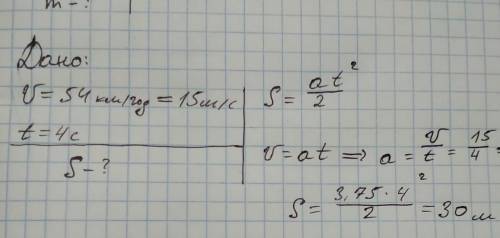 m - ?
Дано:
V = 54 км/год = 15 м/с
t = 4 с
S - ?
S = at²/2
V = at ⇒ a = V/t = 15/4 =
S = 3,75 · 4²/2 = 30 м